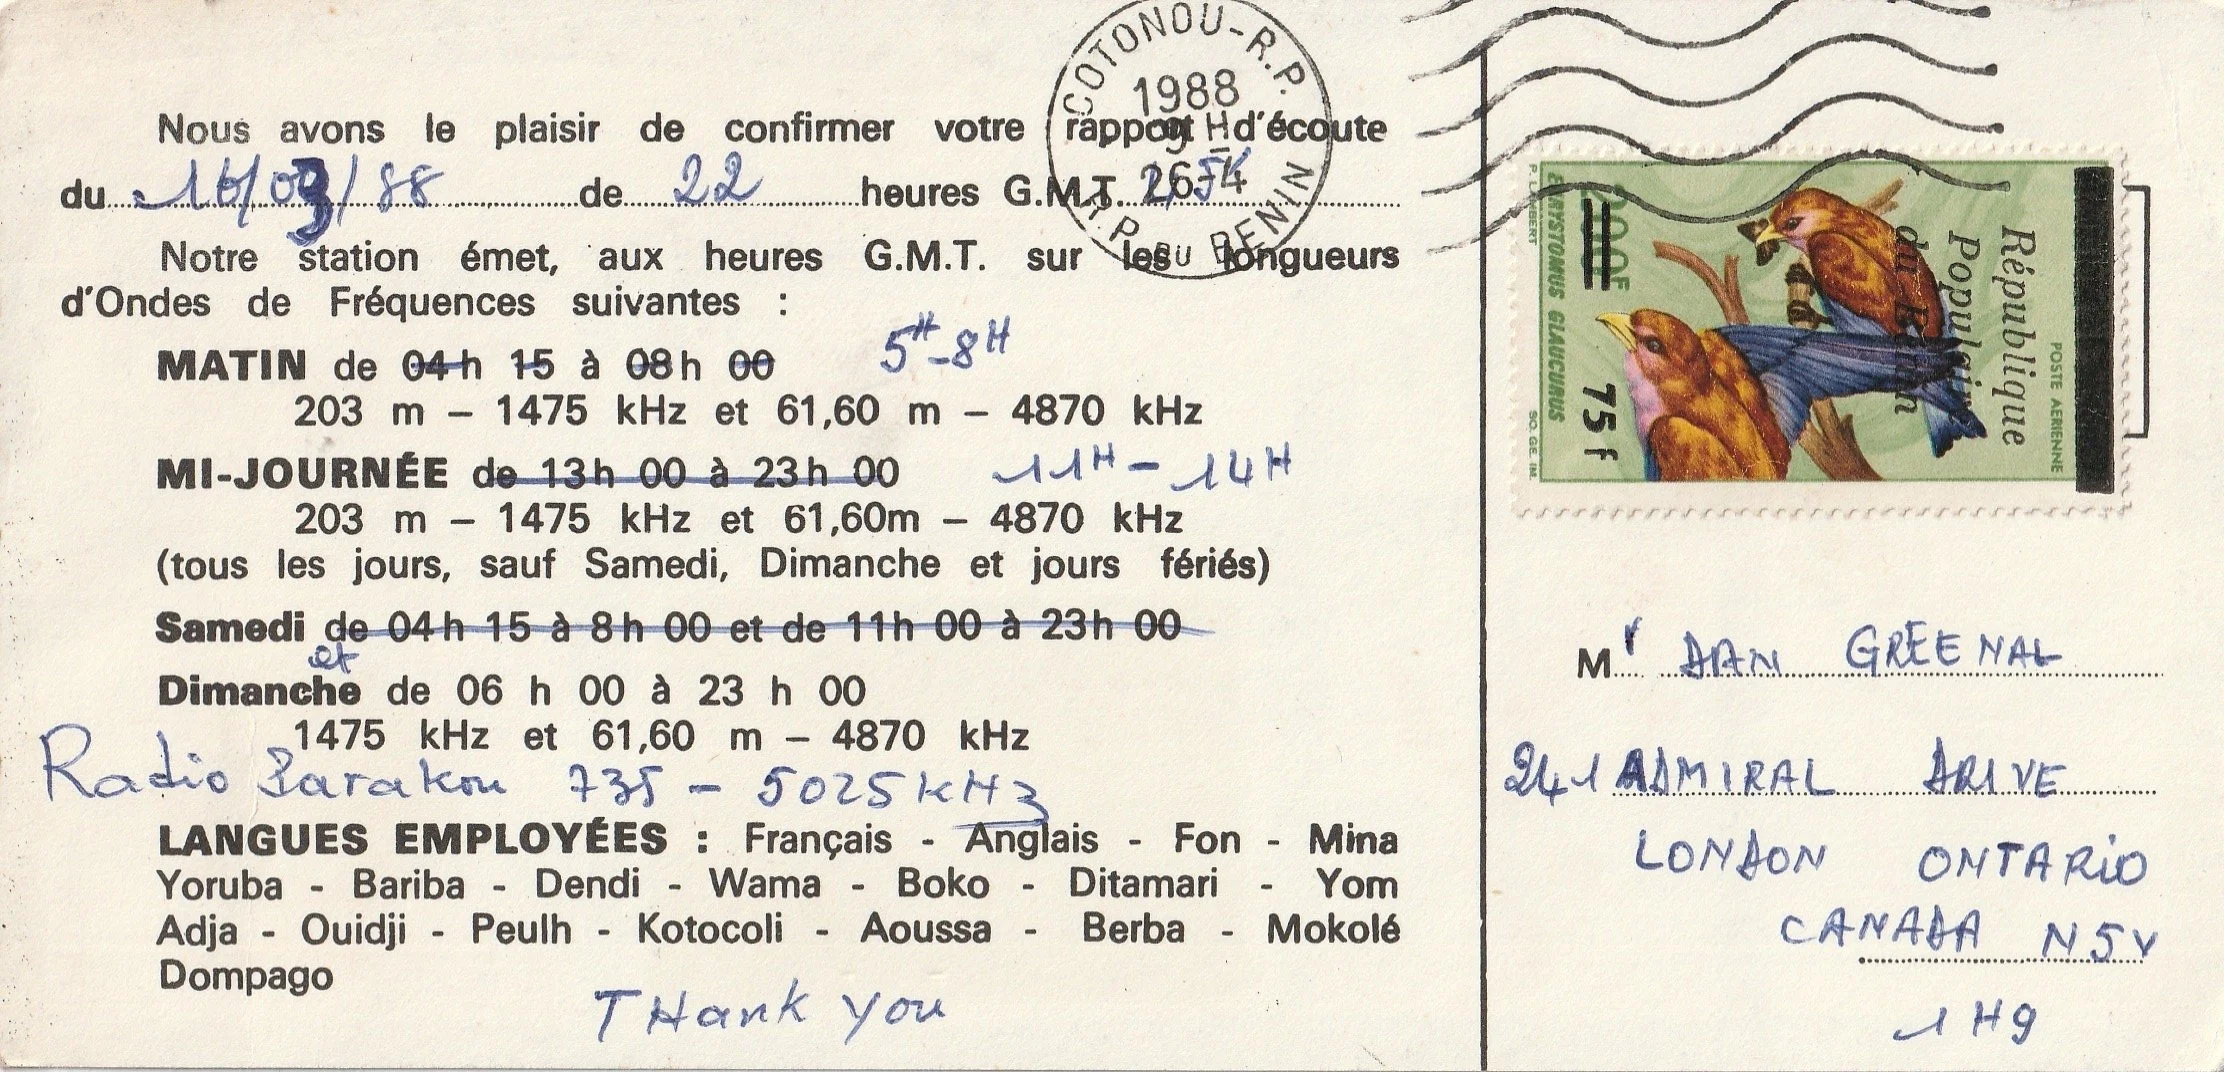 Nous avons le plaisir de confirmer votre rapport d'écoute
du 16/03/88 de 22 heures G.M.T.
Notre station émet, aux heures G.M.T. sur les longueurs
d'Ondes de Fréquences suivantes :
MATIN de 04 h 15 à 08 h 00 5H-8H
203 m – 1475 kHz et 61,60 m – 4870 kHz
MI-JOURNÉE de 13 h 00 à 23 h 00 11H - 14H
203 m – 1475 kHz et 61,60m – 4870 kHz
(tous les jours, sauf Samedi, Dimanche et jours fériés)
Samedi de 04 h 15 à 8 h 00 et de 11h 00 à 23 h 00
et
Dimanche de 06 h 00 à 23 h 00
1475 kHz et 61,60 m – 4870 kHz
Radio Parakou 735 - 5025 kHz
LANGUES EMPLOYÉES : Français - Anglais - Fon - Mina
Yoruba - Bariba - Dendi - Wama - Boko - Ditamari - Yom
Adja - Ouidji - Peulh - Kotocoli - Aoussa - Berba - Mokolé
Dompago
THank You
COTONOU-R.P.
1988
9 H
26-4
R.P. DU BENIN
République
Populaire
du Bénin
POSTE AERIENNE
200F
75f
EURYSTOMUS GLAUCURUS
P. LAMBERT
SO. GE. IM.
Mr DAN GREENAL
241 ADMIRAL DRIVE
LONDON ONTARIO
CANADA N5V
1H9